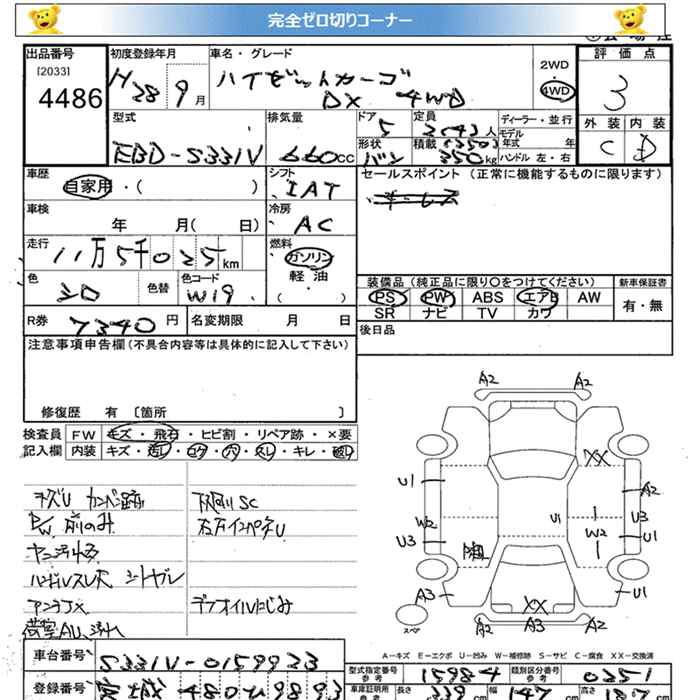 完全ゼロ切りコーナー
出品番号 初度登録年月 車名・グレード
[2033]
4486
H28 9月
ハイゼットカーゴ
DX 4WD
2WD
4WD
評価点
3
外装 内装
C D
型式 排気量 ドア 定員 ディーラー・並行
EBD-S331V 660cc 5 2(4)人
モデル年式 年
形状 積載
バン (350) 350kg ハンドル 左・右
車歴 シフト セールスポイント (正常に機能するものに限ります)
自家用・( ) IAT
車検 冷房
年 月( 日) AC
走行 燃料
11万5千025km ガソリン
軽・油
( )
色 色替 色コード
シロ W19
装備品(純正品に限り〇をつけてください) 新車保証書
PS PW ABS エアB AW 有・無
SR ナビ TV カワ
R券 7340円 名変期限 月 日
後日品
注意事項申告欄(不具合内容等は具体的に記入して下さい)
修復歴 有 〔箇所 〕
検査員 FW キズ・飛石・ヒビ割・リペア跡・×要
記入欄 内装 キズ・汚レ・コゲ・穴・スレ・キレ・破レ
キズU カンバン跡 下廻りSC
PW前のみ 左右インパネU
ハンドルスレ大 シートヤブレ
アンテナX デフオイルにじみ
A2 A2
XX
U1 A2
W2 U1 W2 U3
U3 U1
A3 XX U1
A2 A3 A2
スペア
A-キズ E-エクボ U-凹み W-補修跡 S-サビ C-腐食 XX-交換済
車台番号 S331V-0159923
型式指定番号 参考 15984 類別区分番号 参考 0251
登録番号 宮城 480 U 9893
車庫証明用 参考 長さ 339cm 幅 147cm 高さ 187cm